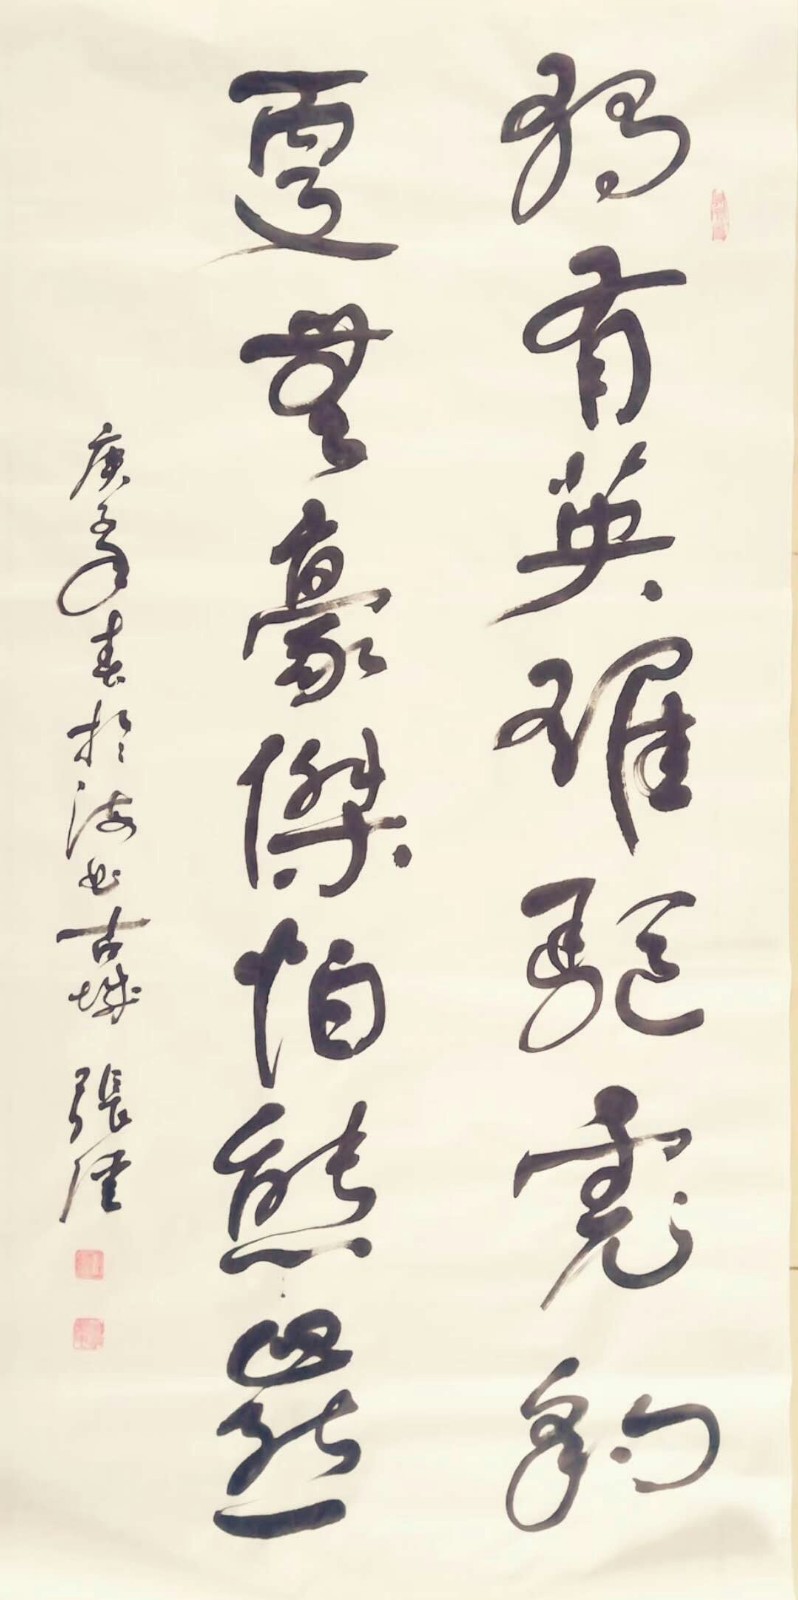 獨有英雄驅虎豹
更無豪傑怕熊羆
庚子年春於海上古城 張